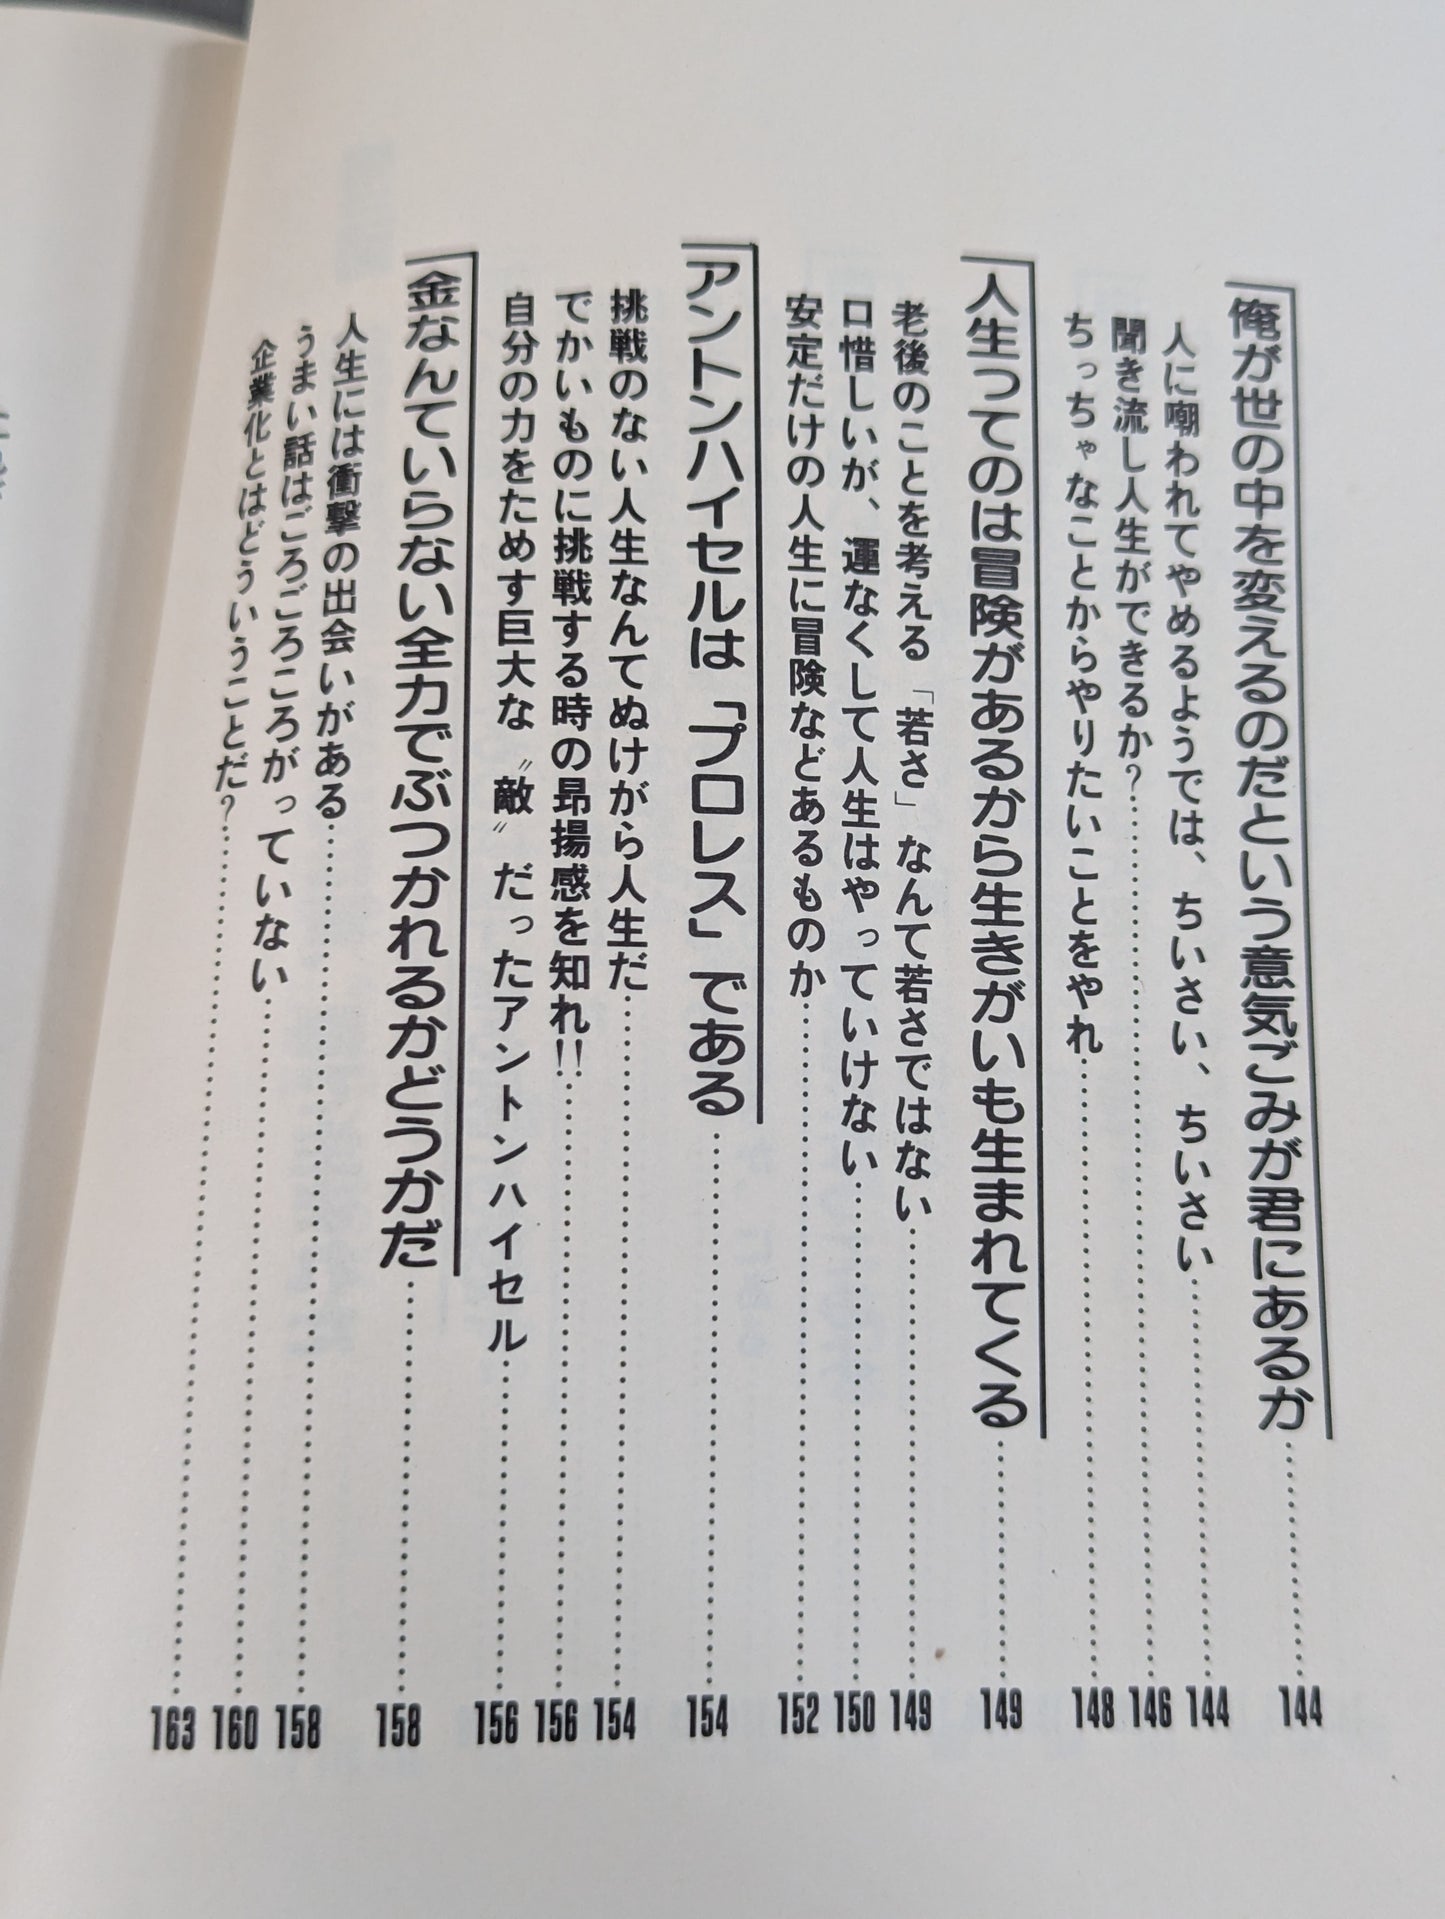 俺が世の中を変えるのだという意気ごみが君にあるか……144
人に嘲われてやめるようでは、ちいさい、ちいさい……144
聞き流し人生ができるか？……146
ちっちゃなことからやりたいことをやれ……148
人生ってのは冒険があるから生きがいも生まれてくる……149
老後のことを考える「若さ」なんて若さではない……149
口惜しいが、運なくして人生はやっていけない……150
安定だけの人生に冒険などあるものか……152
アントンハイセルは「プロレス」である……154
挑戦のない人生なんてぬけがら人生だ……154
でかいものに挑戦する時の昂揚感を知れ!!……156
自分の力をためす巨大な〝敵〟だったアントンハイセル……156
金なんていらない全力でぶつかれるかどうかだ……158
人生には衝撃の出会いがある……158
うまい話はごろごろころがっていない……160
企業化とはどういうことだ？……163